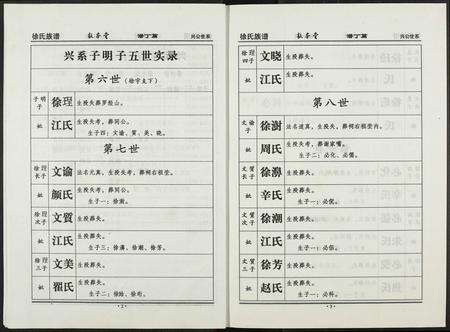 徐氏族谱
敦本堂
增丁篇
兴公世系
兴系子明子五世实录
第六世（徐宇支下）
子明子
徐珵
生殁失葬罗程山。
妣
江氏
生殁失考，葬同公。
生子四：文谕、質、美、晓。
第七世
徐珵长子
文谕
法名元真，生殁失考，葬祠右祖茔。
妣
颜氏
生殁失考，葬同公。
生子一：徐澍。
徐珵次子
文質
生殁葬失。
妣
江氏
生殁葬失。
生子三：徐濤、徐潮、徐芳。
徐珵三子
文美
生殁葬失。
妣
翟氏
生殁葬失。
生子二：徐
·2·
徐氏族谱
敦本堂
增丁篇
兴公世系
徐珵四子
文晓
生殁葬失。
妣
江氏
生殁葬失。
第八世
文谕子
徐澍
法名道真，生殁失，葬祠右祖茔内。
妣
周氏
生殁失考，葬谢家嘴。
生子二：必化、必儒。
文質长子
徐濤
生殁葬失。
妣
辛氏
生殁葬失。
生子一：必
文質次子
徐潮
生殁葬失。
妣
江氏
生殁葬失。
生子一：必
文質三子
徐芳
生殁葬失。
妣
赵氏
生殁葬失。
生子一：必科。
·3·